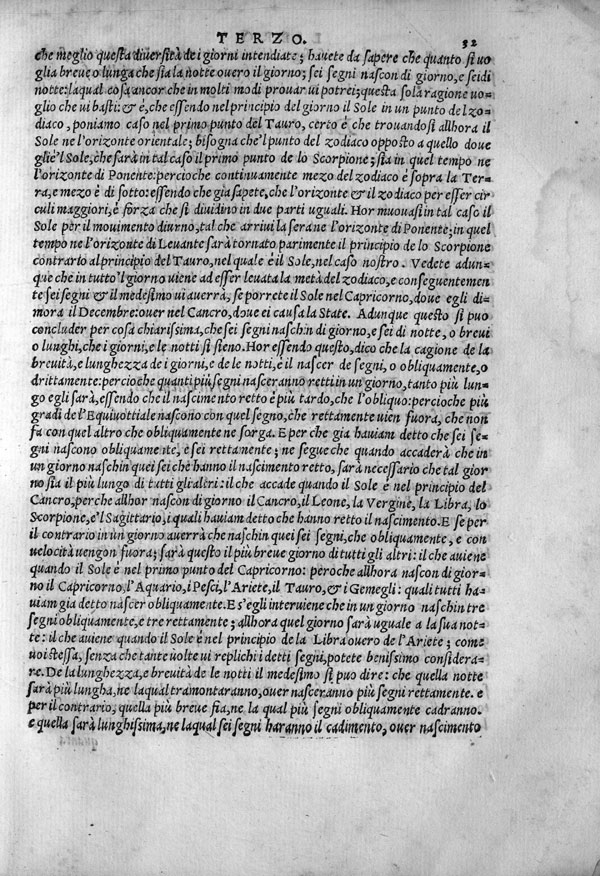 TERZO. 32
che meglio questa diversità de i giorni intendiate; havete da sapere che quanto si uo
glia breue o lunga che sia la notte ouero il giorno; sei segni nascon di giorno, e sei di
notte: laqual cosa ancor che in molti modi prouar ui potrei; questa sola ragione uo=
glio che ui basti: & è, che essendo nel principio del giorno il Sole in un punto del zo=
diaco, poniamo caso nel primo punto del Tauro, certo è che trouandosi allhora il
Sole ne l'orizonte orientale; bisogna che'l punto del zodiaco opposto a quello doue
gliè'l Sole, che sarà in tal caso il primo punto de lo Scorpione; stia in quel tempo ne
l'orizonte di Ponente: percioche continuamente mezo del zodiaco è sopra la Ter=
ra, e mezo è di sotto: essendo che gia sapete, che l'orizonte & il zodiaco per esser cir
culi maggiori, è forza che si diuidino in due parti uguali. Hor muouasi in tal caso il
Sole per il mouimento diurno, tal che arriui la sera ne l'orizonte di Ponente; in quel
tempo ne l'orizonte di Leuante sarà tornato parimente il principio de lo Scorpione
contrario al principio del Tauro, nel quale è il Sole, nel caso nostro. Vedete adun=
que che in tutto'l giorno uiene ad esser leuata la metà del zodiaco, e conseguentemen
te sei segni & il medesimo ui auerrà, se porrete il Sole nel Capricorno, doue egli di=
mora il Decembre: ouer nel Cancro, doue ei causa la State. Adunque questo si può
concluder per cosa chiarissima, che sei segni naschin di giorno, e sei di notte, o breui
o lunghi, che i giorni, e le notti si sieno. Hor essendo questo, dico che la cagione de la
breuità, e lunghezza de i giorni, e de le notti, è il nascer de segni, o obliquamente, o
drittamente: percioche quanti più segni nasceranno retti in un giorno, tanto più lun=
go egli sarà, essendo che il nascimento retto è più tardo, che l'obliquo: percioche più
gradi de l'Equiuottiale nascono con quel segno, che rettamente uien fuora, che non
fa con quel altro che obliquamente ne sorga. E per che gia hauiam detto che sei se=
gni nascono obliquamente, e sei rettamente; ne segue che quando accaderà che in
un giorno naschin quei sei che hanno il nascimento retto, sarà necessario che tal gior
no sia il più lungo di tutti gli altri: il che accade quando il Sole è nel principio del
Cancro, perche allhor nascon di giorno il Cancro, il Leone, la Vergine, la Libra, lo
Scorpione, e'l Sagittario, i quali hauiam detto che hanno retto il nascimento. E se per
il contrario in un giorno auerrà che naschin quei sei segni, che obliquamente, e con
uelocità uengon fuora; sarà questo il più breue giorno di tutti gli altri: il che auiene
quando il Sole è nel primo punto del Capricorno: peroche allhora nascon di gior=
no il Capricorno, l'Aquario, i Pesci, l'Ariete, il Tauro, & i Gemegli: quali tutti ha=
uiam gia detto nascer obliquamente. E s'egli interuiene che in un giorno naschin tre
segni obliquamente, e tre rettamente; allhora quel giorno sarà uguale a la sua not=
te: il che auiene quando il Sole è nel principio de la Libra ouero de l'Ariete; come
uoi stessa, senza che tante uolte ui replichi i detti segni, potete benissimo considera=
re. De la lunghezza, e breuità de le notti il medesimo si può dire: che quella notte
sarà più lungha, ne laqual tramontaranno, ouer nasceranno più segni rettamente. e
per il contrario, quella più breue fia, ne la qual più segni obliquamente cadranno.
e quella sarà lunghissima, ne laqual sei segni haranno il cadimento, ouer nascimento